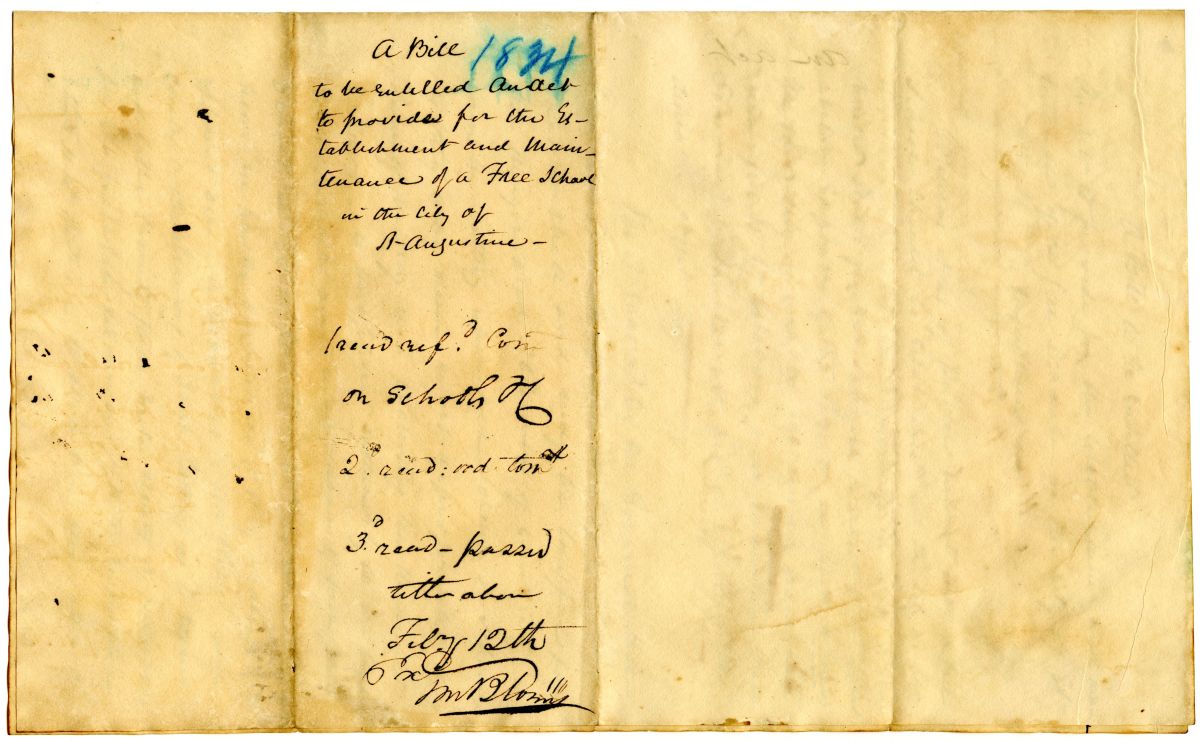 A Bill 1834
to be entitled An Act
to provide for the Es-
tablishment and Main-
tenance of a Free School
in the City of
St Augustine -
1 read ref.d Com
on Schools &c
2d. read: ord. to
3d. read - passed
title above
Feby 12th